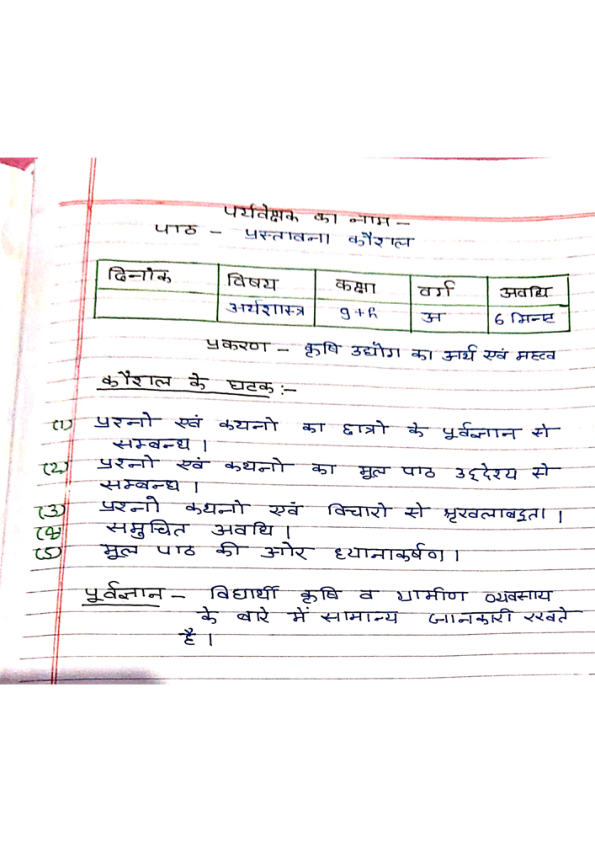 पर्यवेक्षक का नाम –
पाठ – प्रस्तावना कौशल
दिनाँक विषय कक्षा वर्ग अवधि
अर्थशास्त्र 9th अ 6 मिनट
प्रकरण – कृषि उद्योग का अर्थ एवं महत्व
कौशल के घटक :–
(1) प्रश्नो एवं कथनो का छात्रो के पूर्वज्ञान से
सम्बन्ध ।
(2) प्रश्नो एवं कथनो का मूल पाठ उद्देश्य से
सम्बन्ध ।
(3) प्रश्नो कथनो एवं विचारो से श्रृखलाबद्रता ।
(4) समुचित अवधि ।
(5) मूल पाठ की ओर ध्यानाकर्षण ।
पूर्वज्ञान – विद्यार्थी कृषि व ग्रामीण व्यवसाय
के बारे में सामान्य जानकारी रखते
है ।